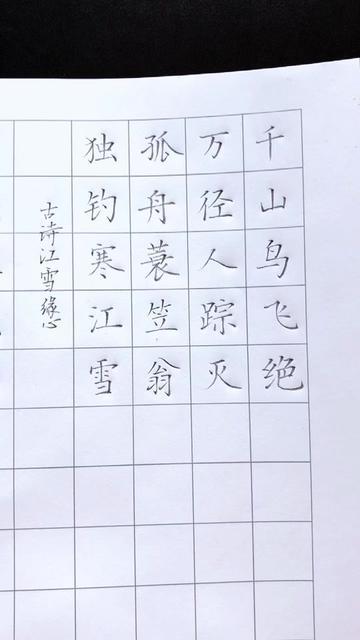 千山鸟飞绝
万径人踪灭
孤舟蓑笠翁
独钓寒江雪
古诗江雪缘心